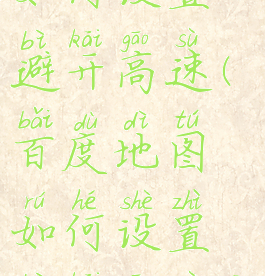 bì kāi gāo sù
避开高速(
bǎi dù dì tú
百度地图
rú hé shè zhì
如何设置